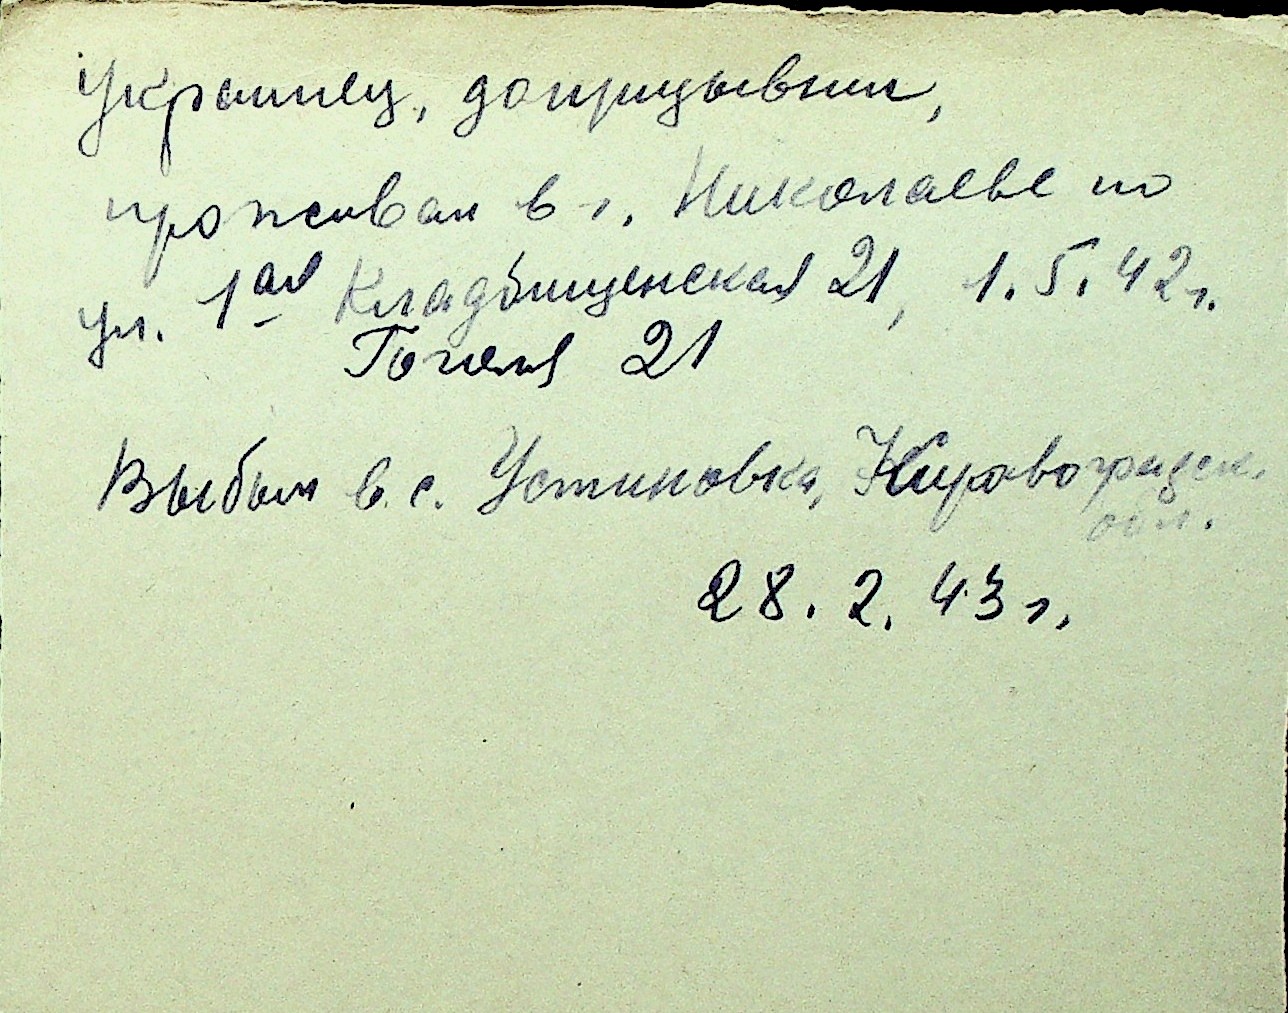 Украинец, допризывник,
проживал в г. Николаеве по
ул. 1ая Кладбищенская 21, 1.5.42г.
Гоголя 21
Выбыл в с. Устиновка, Кировоградск.
обл.
28.2.43г.